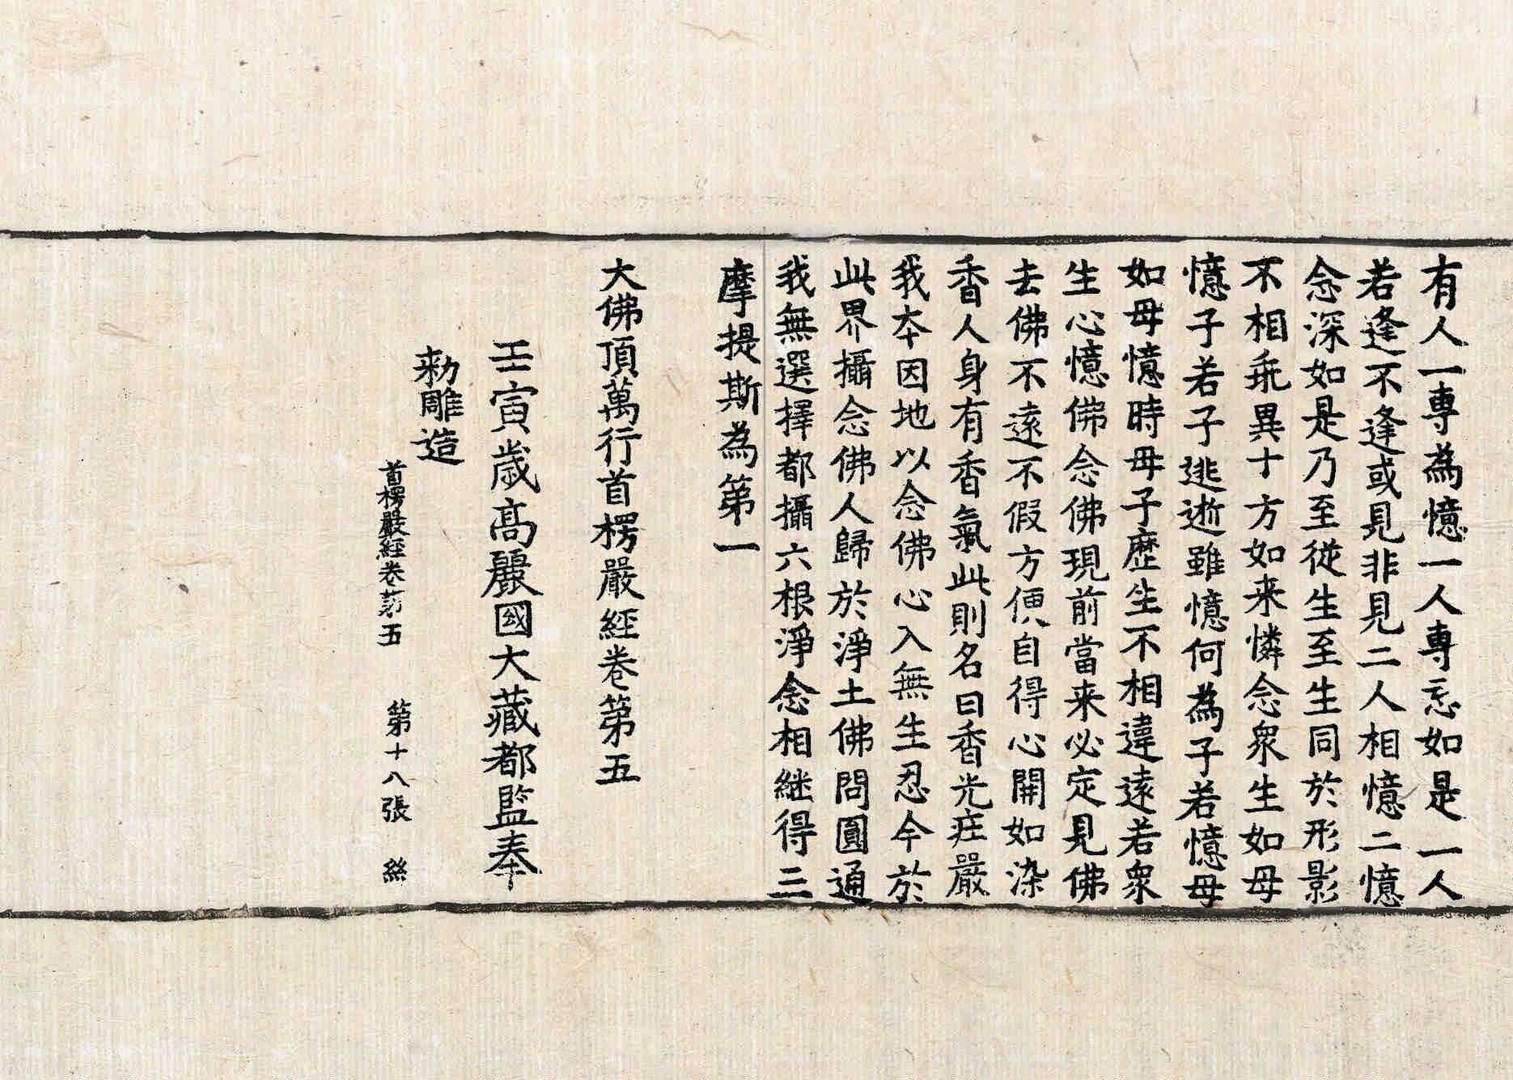 有人一專為憶一人專忘如是一人
若逢不逢或見非見二人相憶二憶
念深如是乃至從生至生同於形影
不相乖異十方如来憐念衆生如母
憶子若子逃逝雖憶何為子若憶母
如母憶時母子歷生不相違遠若衆
生心憶佛念佛現前當来必定見佛
去佛不遠不假方便自得心開如染
香人身有香氣此則名曰香光莊嚴
我本因地以念佛心入無生忍今於
此界攝念佛人歸於淨土佛問圓通
我無選擇都攝六根淨念相継得三
摩提斯為第一
大佛頂萬行首楞嚴經卷第五
壬寅歲高麗國大藏都監奉
勑雕造
首楞嚴經卷第五 第十八張 絲